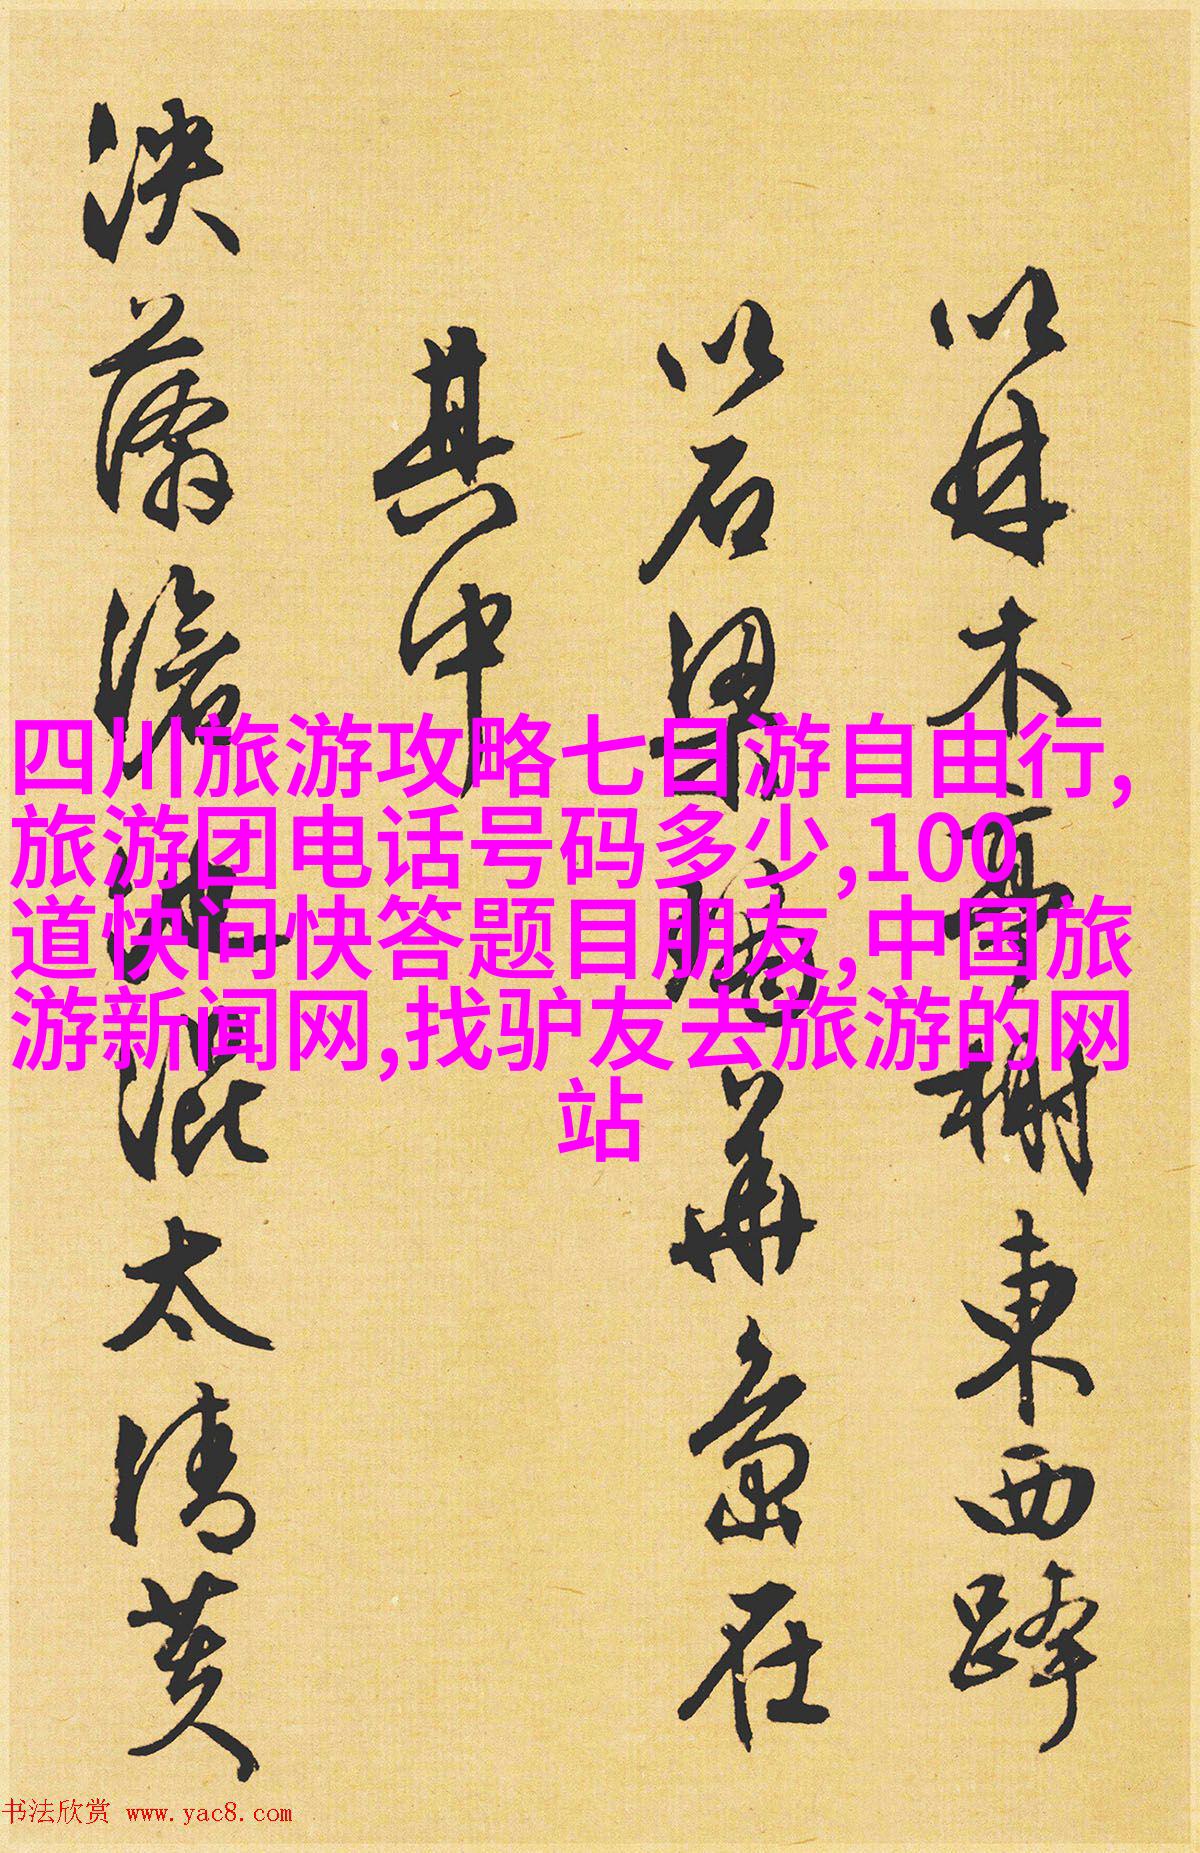 以林木台榭東西跨
以石梁蟠華島在
其中
泱漭澹沲混太清莫
四川旅游攻略七日游自由行,
旅游团电话号码多少,100
道快问快答题目朋友,中国旅
游新闻网,找驴友去旅游的网
站
书法欣赏 www.yac8.com